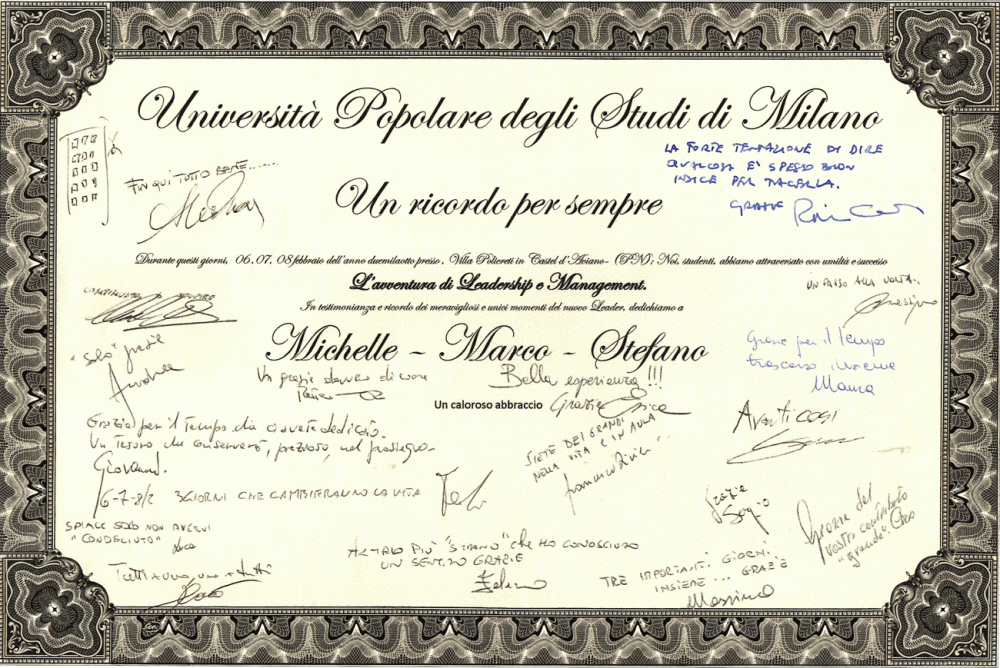 Università Popolare degli Studi di Milano
LA FORTE TENTAZIONE DI DIRE
QUALCOSA E' SPESSO BUON
INDICE PER TACERLA.
GRAZIE
FIN QUI TUTTO BENE......
Un ricordo per sempre
Durante questi giorni, 06,07,08 febbraio dell'anno duemilaotto presso, Villa Policreti in Castel d'Aviano- (PN); Noi, studenti, abbiamo attraversato con umiltà e successo
L'avventura di Leadership e Management.
In testimonianza e ricordo dei meravigliosi e unici momenti del nuovo Leader, dedichiamo a
UN PASSO ALLA VOLTA..
Michelle - Marco - Stefano
"solo" grazie
Andrea
Grazie per il tempo
trascorso insieme
Maura
Un grazie davvero di cuore
Bella esperienza !!!
Grazie
Un caloroso abbraccio
AVANTI COSI
Grazie per il tempo che ci avete dedicato.
Un Tesoro che conserverò, prezioso, nel prosieguo.
Giovanni.
SIETE DEI GRANDI
NELLA VITA E IN AULA
6-7-8/2 3 GIORNI CHE CAMBIERANNO LA VITA
Grazie
SPIACE SOLO NON AVERVI
"CONOSCIUTO" Luca
Grazie del
vostro contributo
"grande".
AL TRIO PIÙ "STRANO" CHE HO CONOSCIUTO
UN SENTITO GRAZIE
Tutti x uno, uno x tutti
TRE IMPORTANTI GIORNI
INSIEME... GRAZIE
Massimo